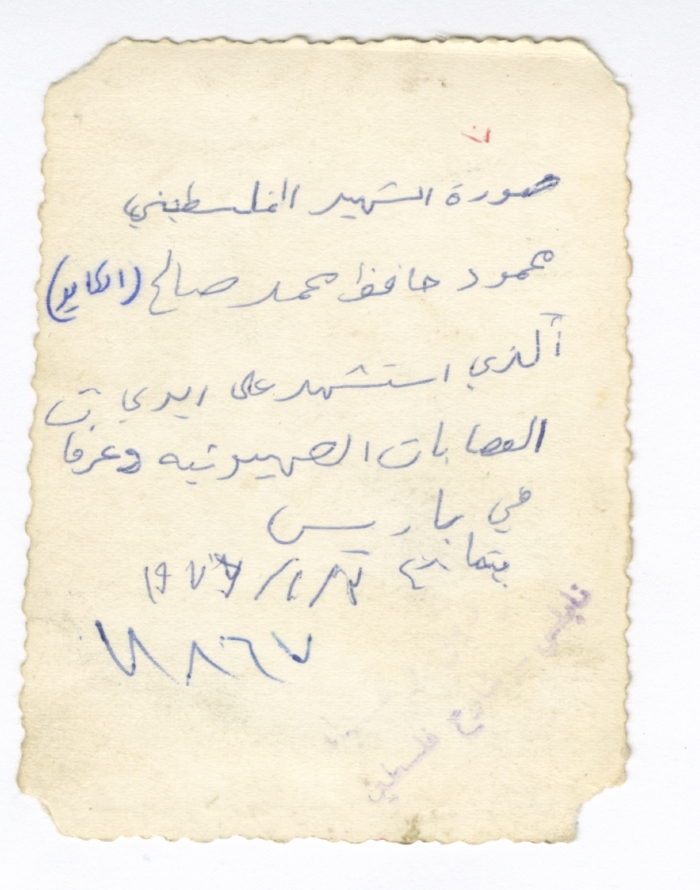 صورة الشهيد الفلسطيني
محمود حافظ محمد صالح (الكايد)
الذي استشهد على ايدي
العصابات الصهيونيه وعرفات
في باريس
بتاريخ ٣/١/١٩٧٧
نابلس - شارع فلسطين